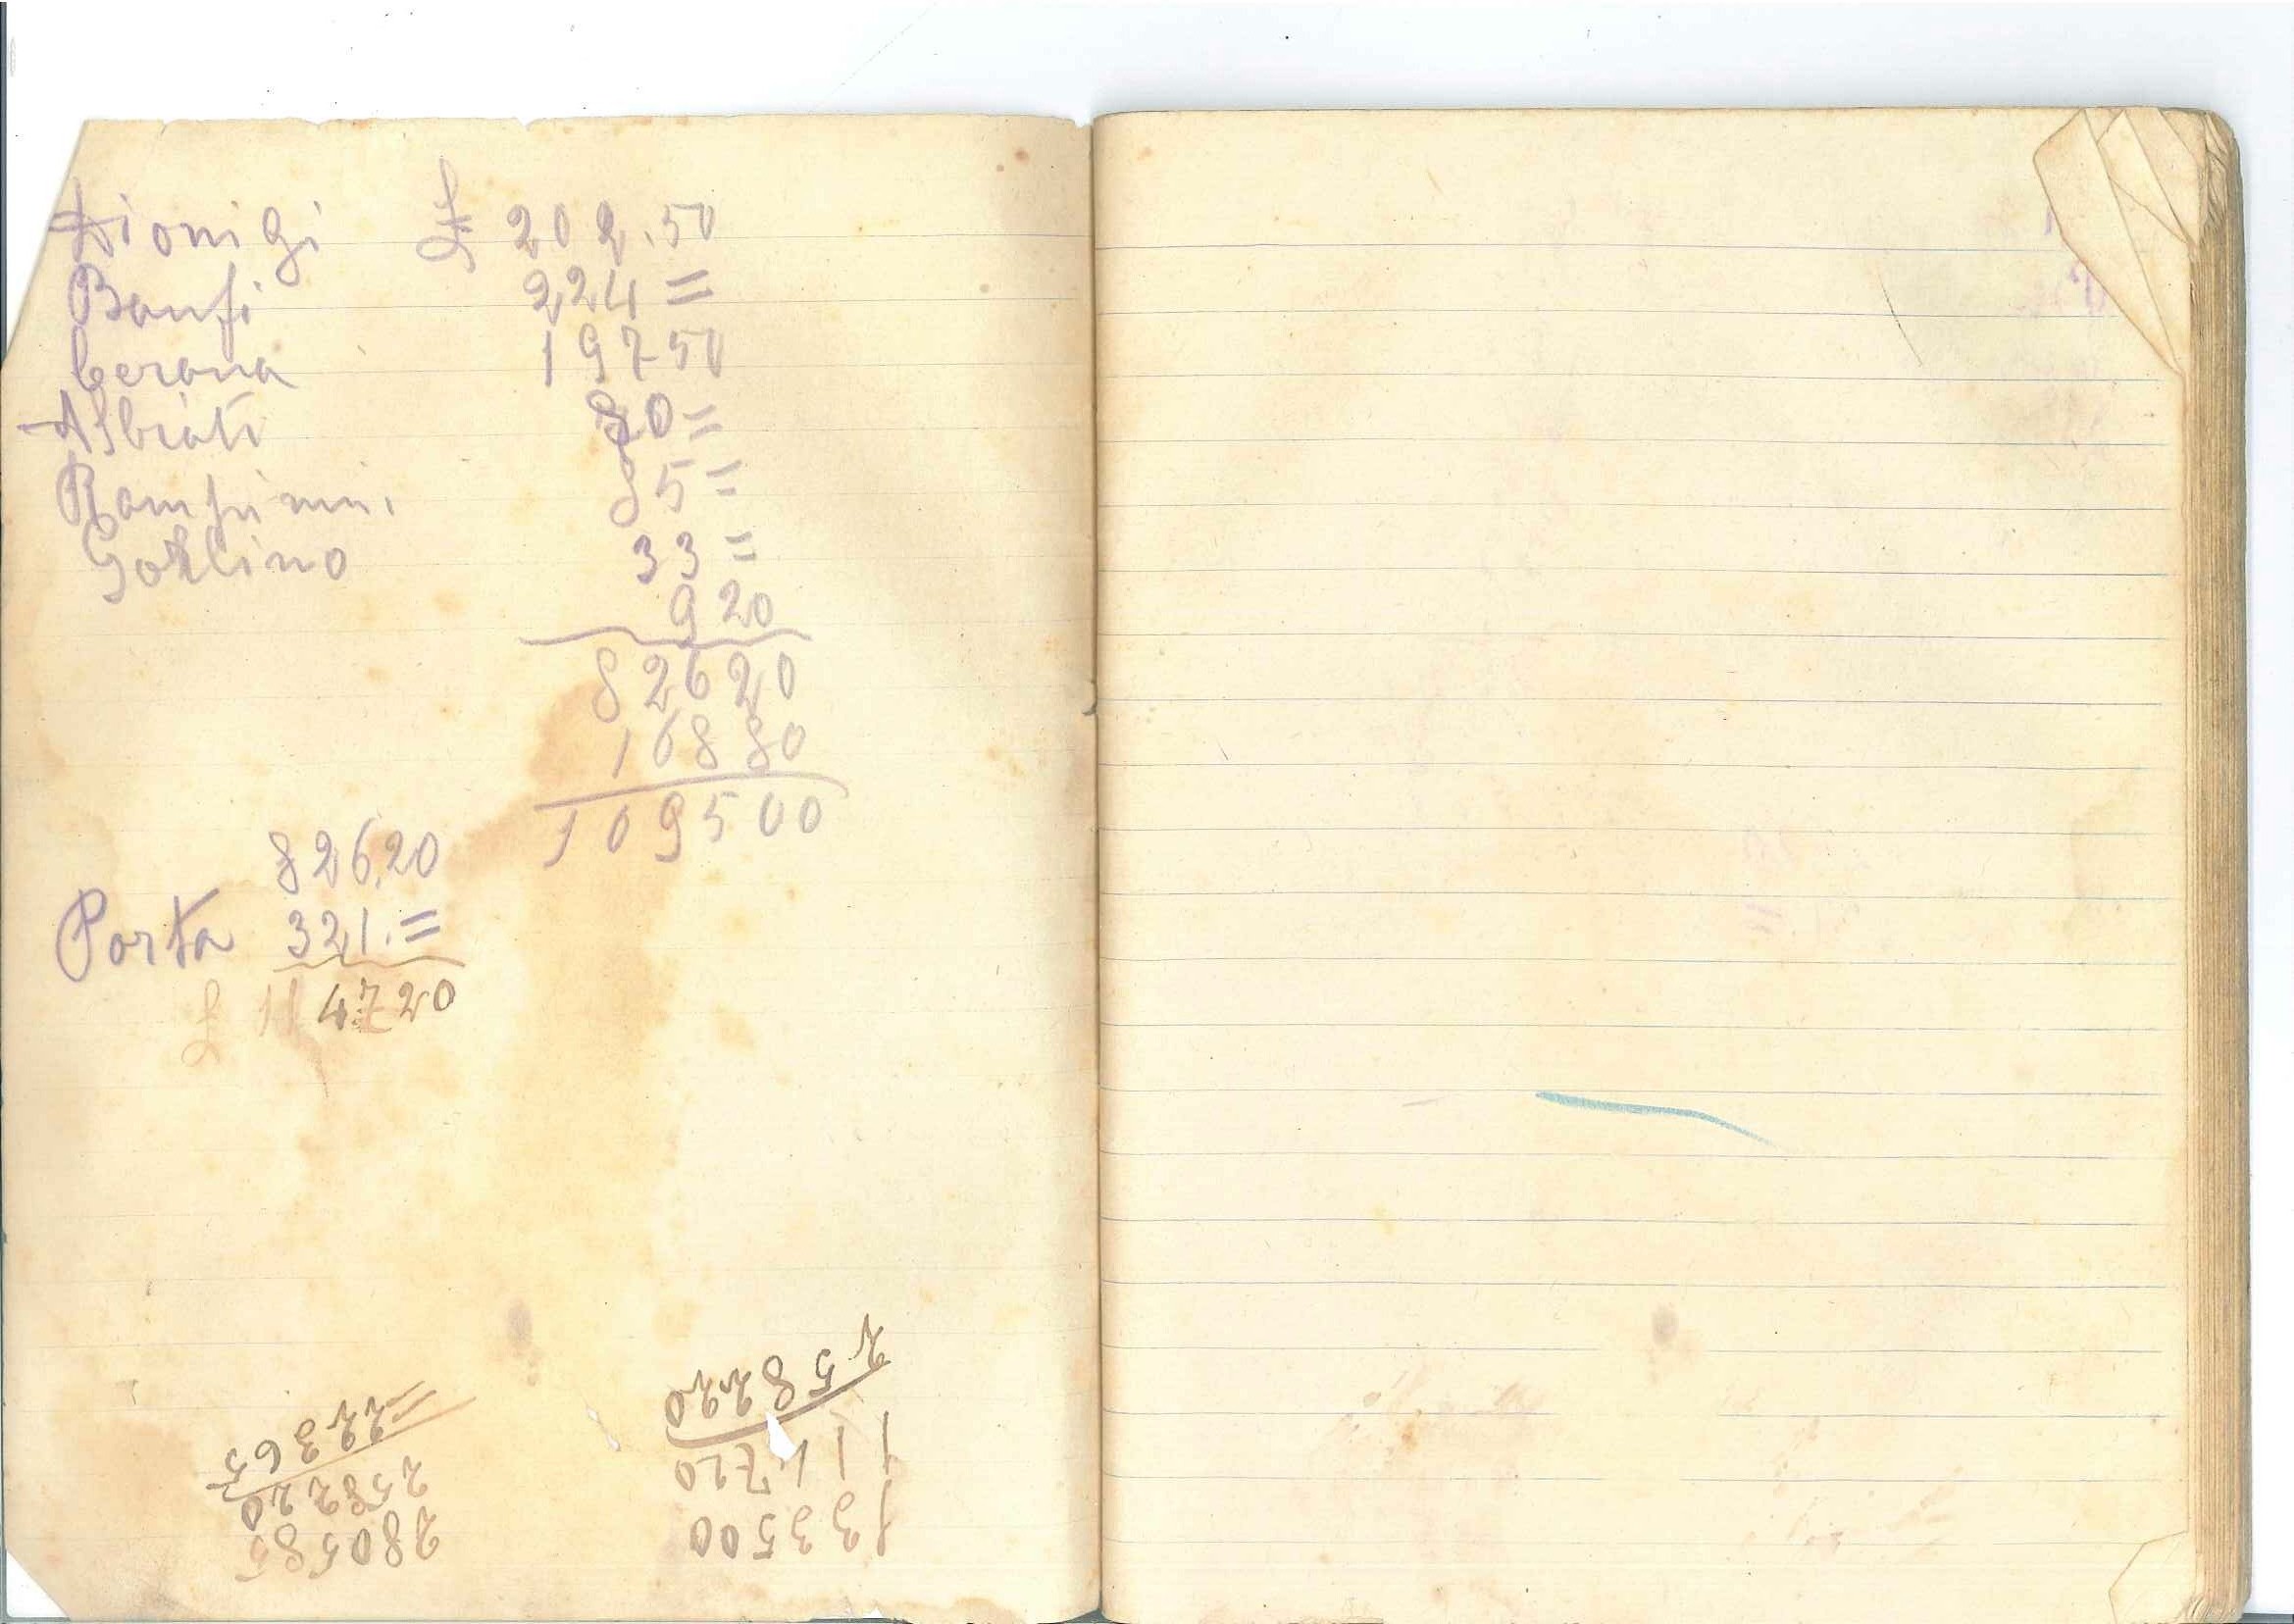 Dionigi £ 202.50
Banfi 224 =
Cerana 197 50
Albiati 80 =
Rampinini 85 =
33 =
9 20
826 20
168 80
1095 00
826.20
Porta 321. =
£ 1147 20
280585
258220
= 22365
133500
258220